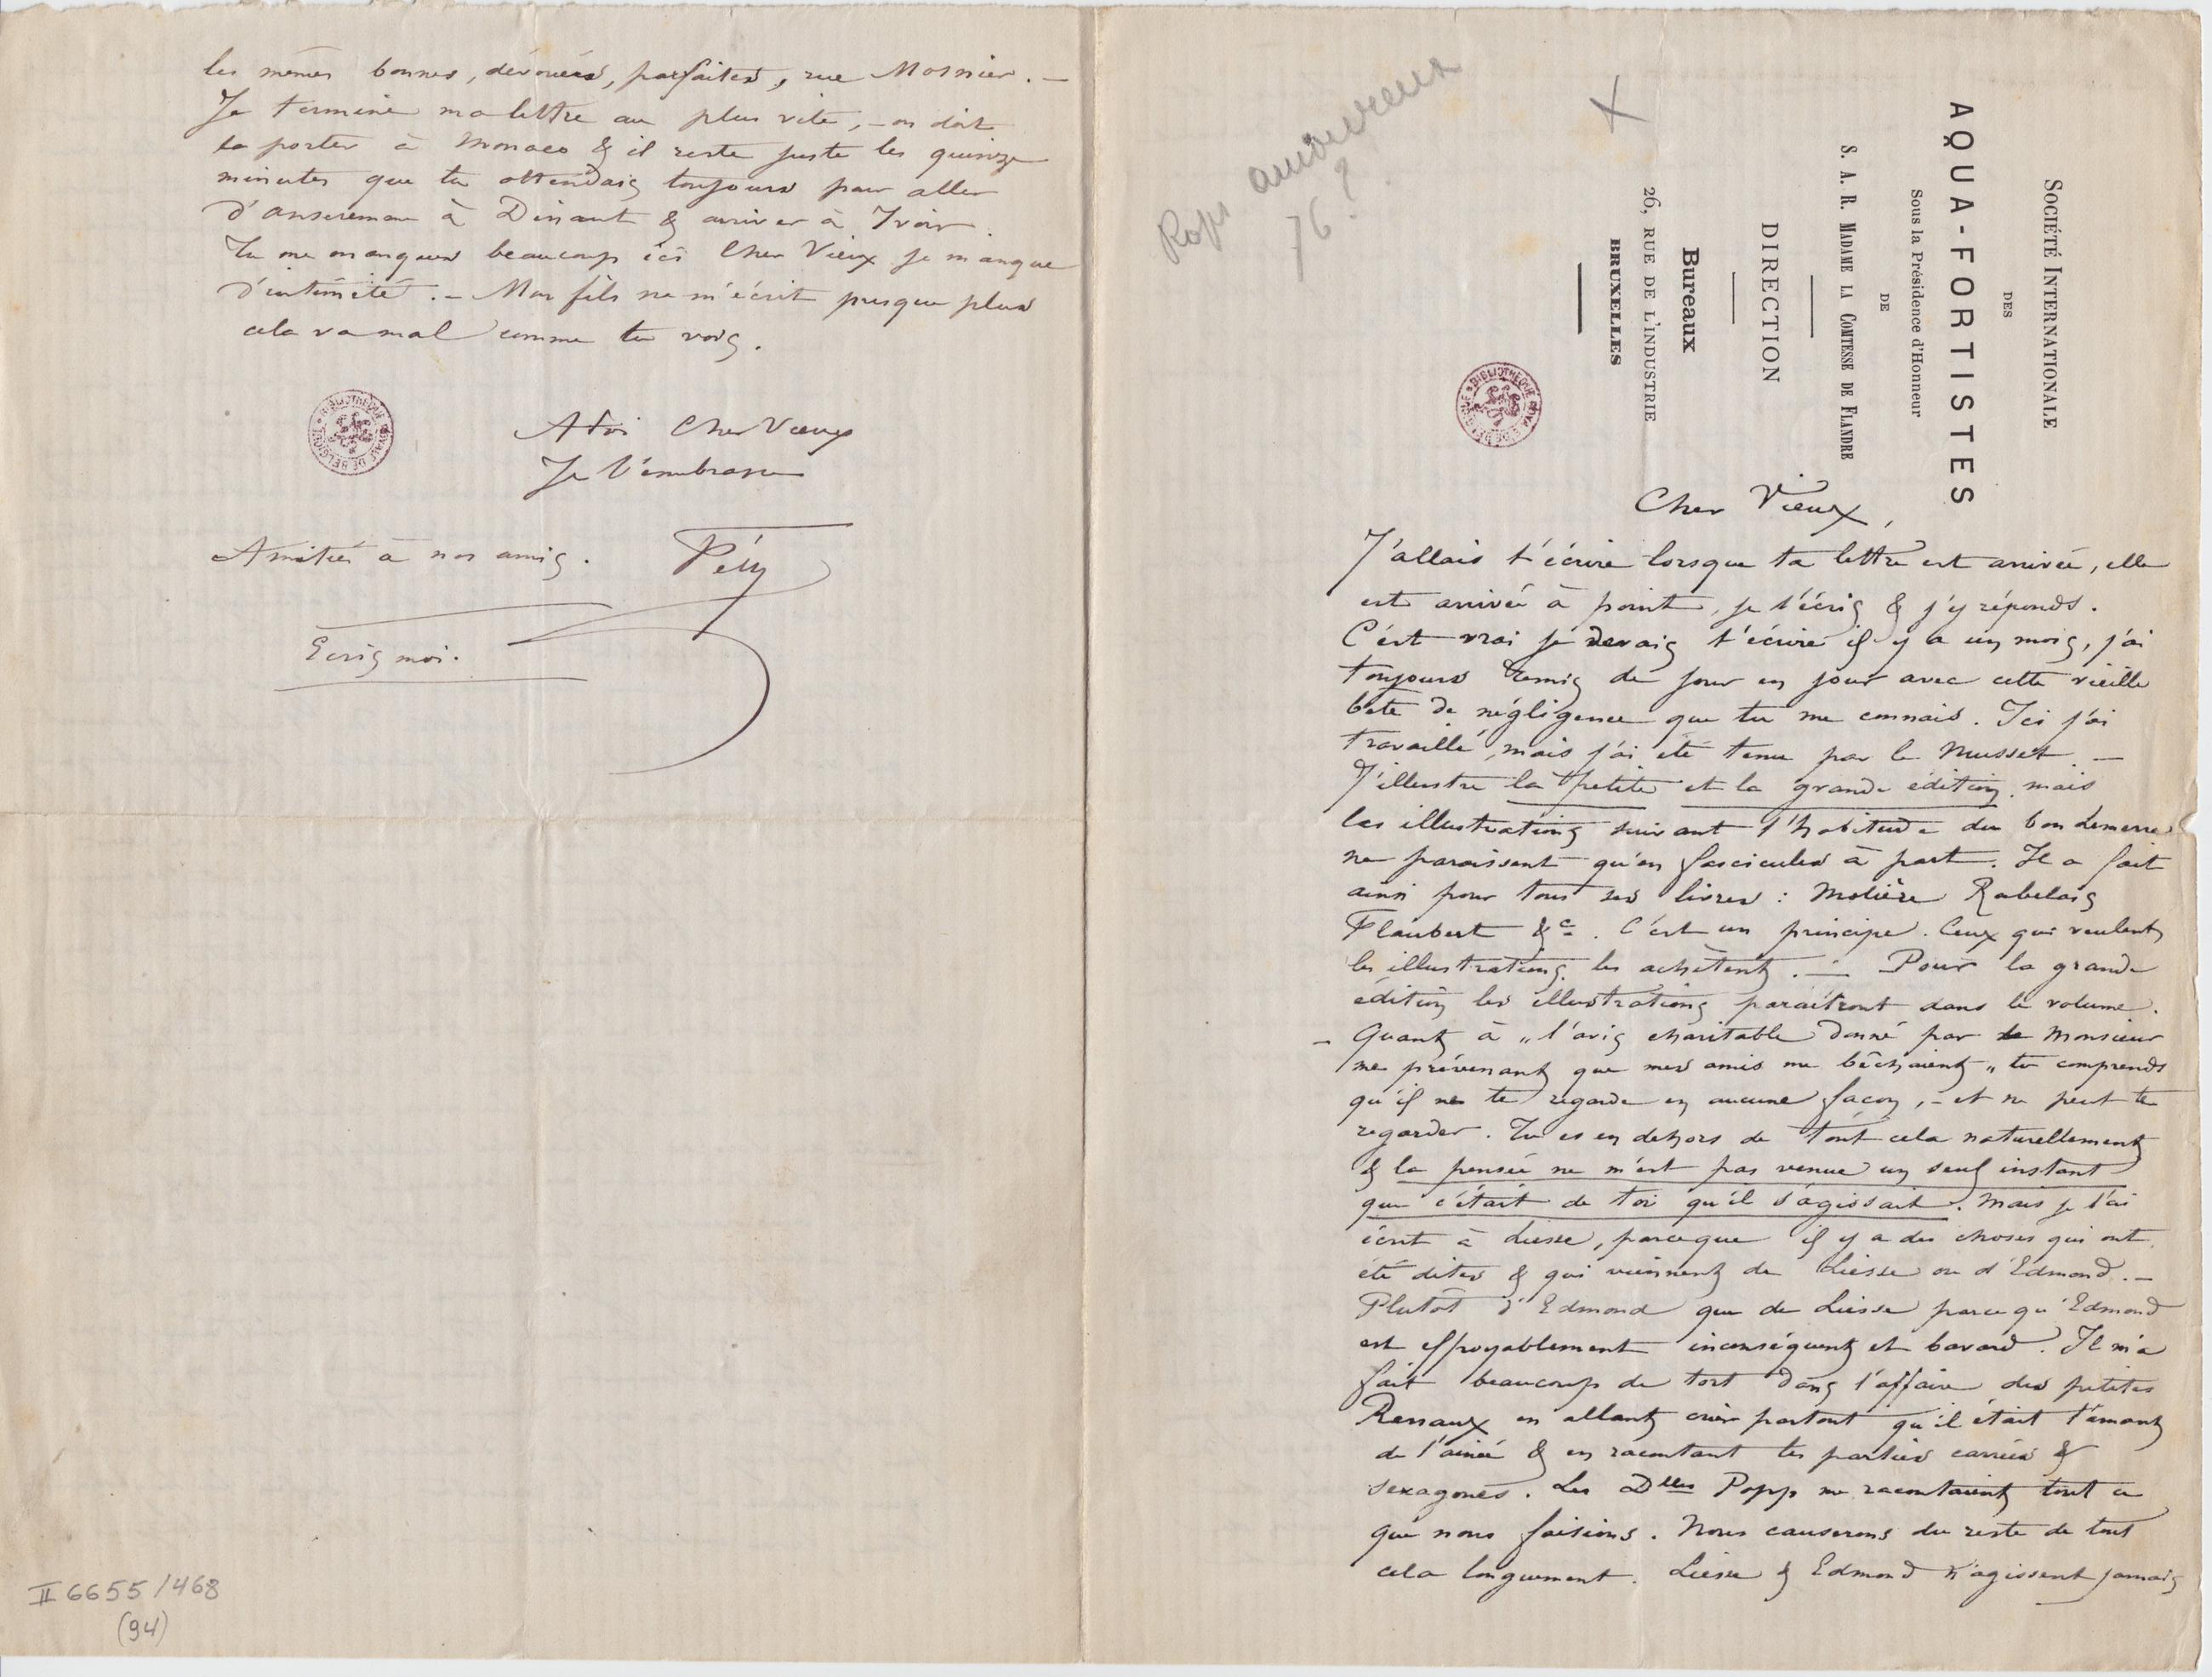 SOCIÉTÉ INTERNATIONALE
DES
AQUA-FORTISTES
Sous la Présidence d'Honneur
DE
S. A. R. MADAME LA COMTESSE DE FLANDRE
DIRECTION
Bureaux
26, RUE DE L'INDUSTRIE
BRUXELLES
Rops amoureux
76?
Cher Vieux,
J'allais t'écrire lorsque ta lettre est arrivée, elle
est arrivée à point, je t'écris & j'y réponds.
C'est vrai je devais t'écrire il y a un mois, j'ai
toujours remis de jour en jour avec cette vieille
bête de négligence que tu me connais. Ici j'ai
travaillé, mais j'ai été tenu par le Musset. —
J'illustre la petite et la grande édition. mais
les illustrations suivant l'habitude du bon Lemerre
ne paraissent qu'en fascicules à part. Il a fait
ainsi pour tous ses livres : Molière Rabelais
Flaubert &c. C'est un principe. Ceux qui veulent
les illustrations les achètent. — Pour la grande
édition les illustrations paraîtront dans le volume.
– Quant à „l'avis charitable donné par le Monsieur
me prévenant que mes amis me bêchaient„ tu comprends
qu'il ne te regarde en aucune façon, – et ne peut te
regarder. Tu es en dehors de tout cela naturellement
& la pensée ne m'est pas venue un seul instant
que c'était de toi qu'il s'agissait. Mais je l'ai
écrit à Liesse, parceque il y a des choses qui ont
été dites & qui viennent de Liesse ou d'Edmond. —
Plutôt d'Edmond que de Liesse parce qu'Edmond
est effroyablement inconséquent et bavard. Il m'a
fait beaucoup de tort dans l'affaire des petites
Renaux en allant crier partout qu'il était l'amant
de l'ainée & en racontant les parties carrées &
sexagones. Les Dlles Popp me racontaient tout ce
que nous faisions. Nous causerons du reste de tout
cela longuement. Liesse & Edmond n'agissent jamais
les mêmes bonnes, dévouées, parfaites, rue Mosnier. —
Je termine ma lettre au plus vite, – on doit
la porter à Monaco & il reste juste les quinze
minutes que tu attendais toujours pour aller
d'Anseremme à Dinant & arriver à Ivoir.
Tu me manques beaucoup ici Cher Vieux je manque
d'intimité. – Mon fils ne m'écrit presque plus
cela va mal comme tu vois.
A toi Cher Vieux
Je t'embrasse
Amitiés à nos amis.
Fély
Ecris moi.
BIBLIOTHEQUE ROYALE DE BELGIQUE
BIBLIOTHEQUE ROYALE DE BELGIQUE
II 6655/468
(94)